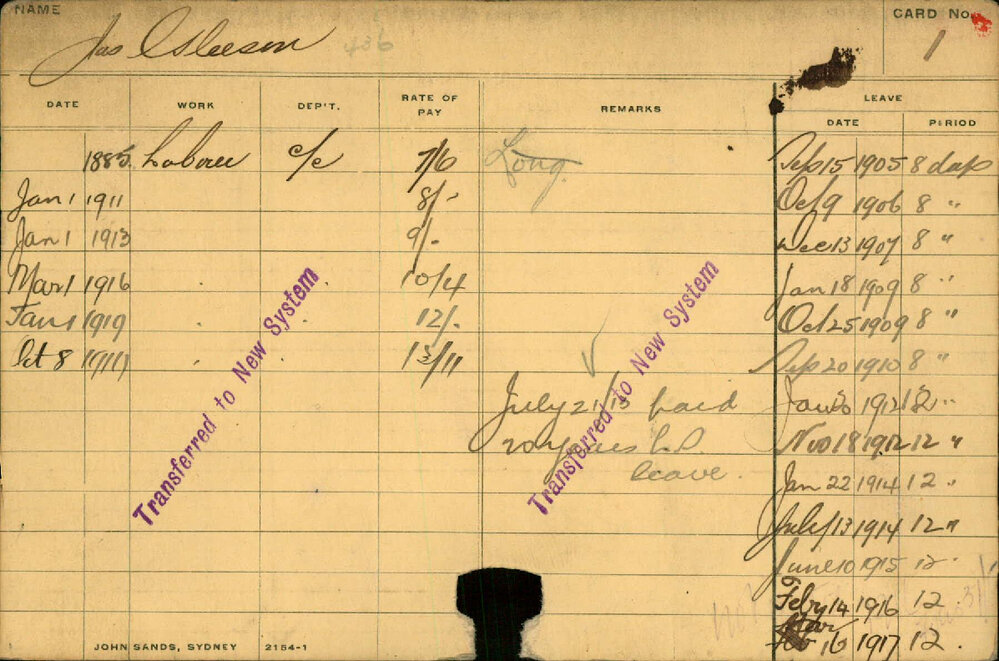 NAME
Jas Gleeson 436
CARD No.
1
DATE WORK DEP'T. RATE OF PAY REMARKS LEAVE
DATE PERIOD
1885 Laborer c/c 7/6 Long. Sep 15 1905 8 days
Jan 1 1911 8/- Oct 9 1906 8 "
Jan 1 1913 9/- Dec 13 1907 8 "
Mar 1 1916 10/4 Jan 18 1909 8 "
Jan 1 1919 12/- Oct 25 1909 8 "
Oct 8 13/11 Sep 20 1910 8 "
July 21/13 paid Jan 1912 12 "
20 years L.S. Nov 18 1912 12 "
leave. Jan 22 1914 12 "
July 13 1914 12 "
June 10 1915 12 "
Feby 14 1916 12
Mar 16 1917 12.
Transferred to New System
Transferred to New System
JOHN SANDS, SYDNEY 2154-1